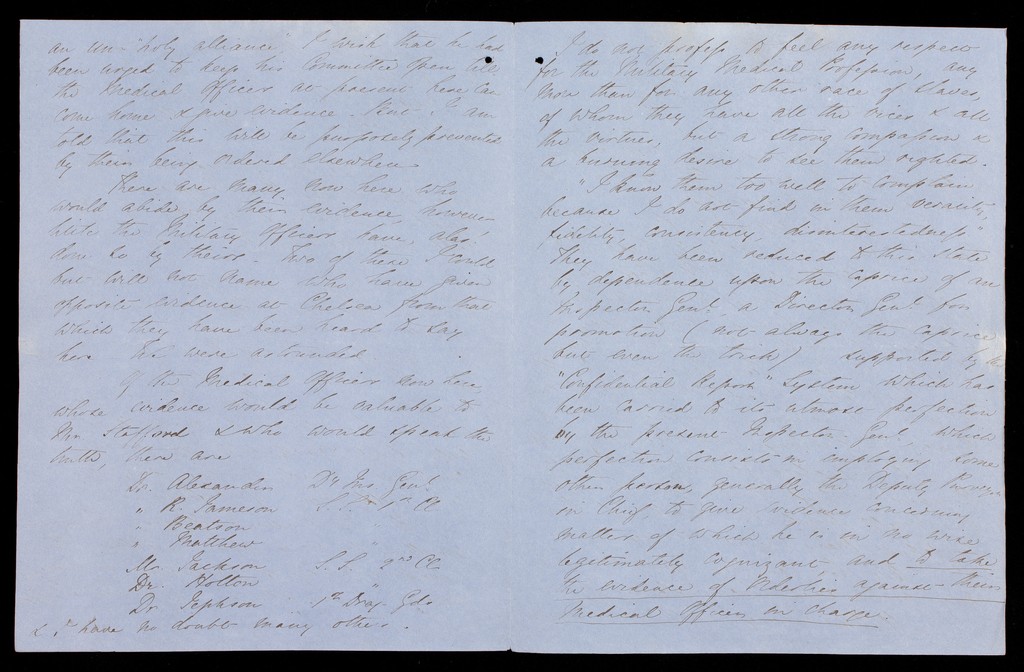 an un-"holy alliance". I wish that he had
been urged to keep his Committee open till
the Medical Officers at present here can
come home & give evidence. But I am
told that this will be purposely prevented
by their being ordered elsewhere.
There are many now here who
would abide by their evidence, however
little the Military Officers have, alas!
done so by theirs. Two of these I could
but will not name who have given
opposite evidence at Chelsea from that
which they have been heard to say
here. We were astounded.
Of the Medical Officers now here,
whose evidence would be valuable to
Mr. Stafford & who would speak the
truth, there are
Dr. Alexander Dy Ins. Genl.
" R. Jameson S.S. 1st Cl
" Beatson "
" Matthew "
Mr. Jackson S.S. 2nd Cl.
Dr. Holton "
Dr. Jephson 1st Drag. Gds
& I have no doubt many others.
I do not profess to feel any respect
for the Military Medical Profession, any
more than for any other race of Slaves,
of whom they have all the vices & all
the virtues, but a strong compassion &
a burning desire to see them righted.
"I know them too well to complain
because I do not find in them veracity,
fidelity, consistency, disinterestedness"
They have been reduced to this state
by dependence upon the caprice of an
Inspector Genl., a Director Genl. for
promotion (not always the caprice
but even the trick) supported by a
"Confidential Report" System which has
been carried to its utmost perfection
by the present Inspector-Genl., which
perfection consists in employing some
other person, generally the Deputy Purveyor
in Chief, to give evidence concerning
matters of which he is in no wise
legitimately cognizant and to take
the evidence of Orderlies against their
Medical Officer in charge.